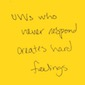 who
never respond
creates hard
feelings